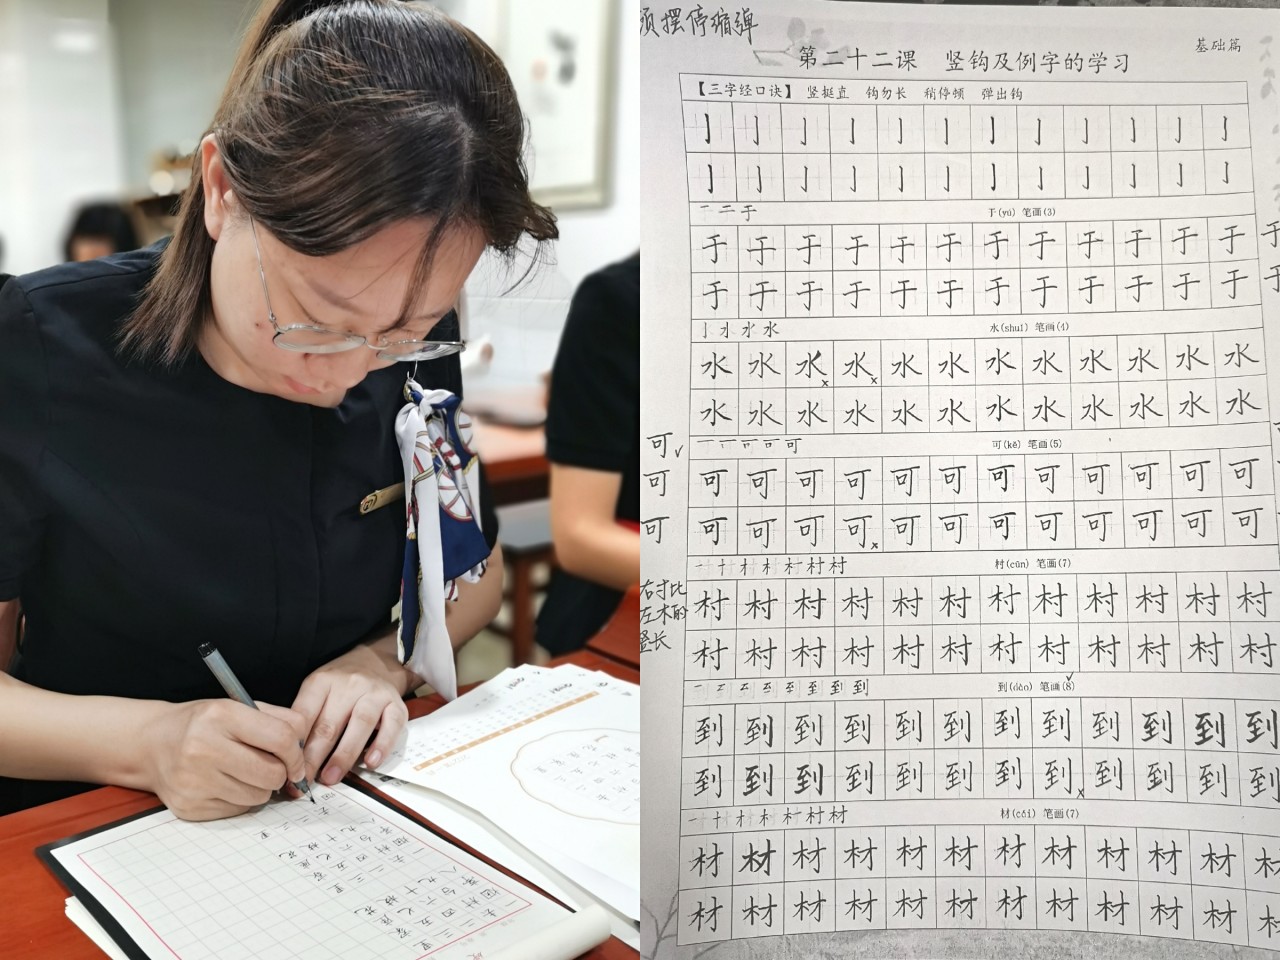 一去二三里
烟村四五家
亭台六七座
八九十枝花
一去二三里
烟村四五家
亭台六七座
八九十枝花
一去二三里
烟
摆停缩弹
基础篇
第二十二课 竖钩及例字的学习
【三字经口诀】 竖挺直 钩勿长 稍停顿 弹出钩
亅亅亅亅亅亅亅亅亅亅亅亅
亅亅亅亅亅亅亅亅亅亅亅亅
一 二 于 于(yú) 笔画(3)
于于于于于于于于于于于于于
于于于于于于于于于于于于于
水 水(shuǐ) 笔画(4)
水水水水水水水水水水水水
水水水水水水水水水水水水
可 可(kě) 笔画(5)
可
可
可
可可可可可可可可可可可可
可可可可可可可可可可可可
一 十 才 木 村 村 村(cūn) 笔画(7)
右寸比
左木的
竖长
村村村村村村村村村村村村
村村村村村村村村村村村村
一 至 到 到 到(dào) 笔画(8)
到到到到到到到到到到到到
到到到到到到到到到到到到
一 十 才 木 村 材 材(cái) 笔画(7)
材材材材材材材材材材材材
材材材材材材材材材材材材